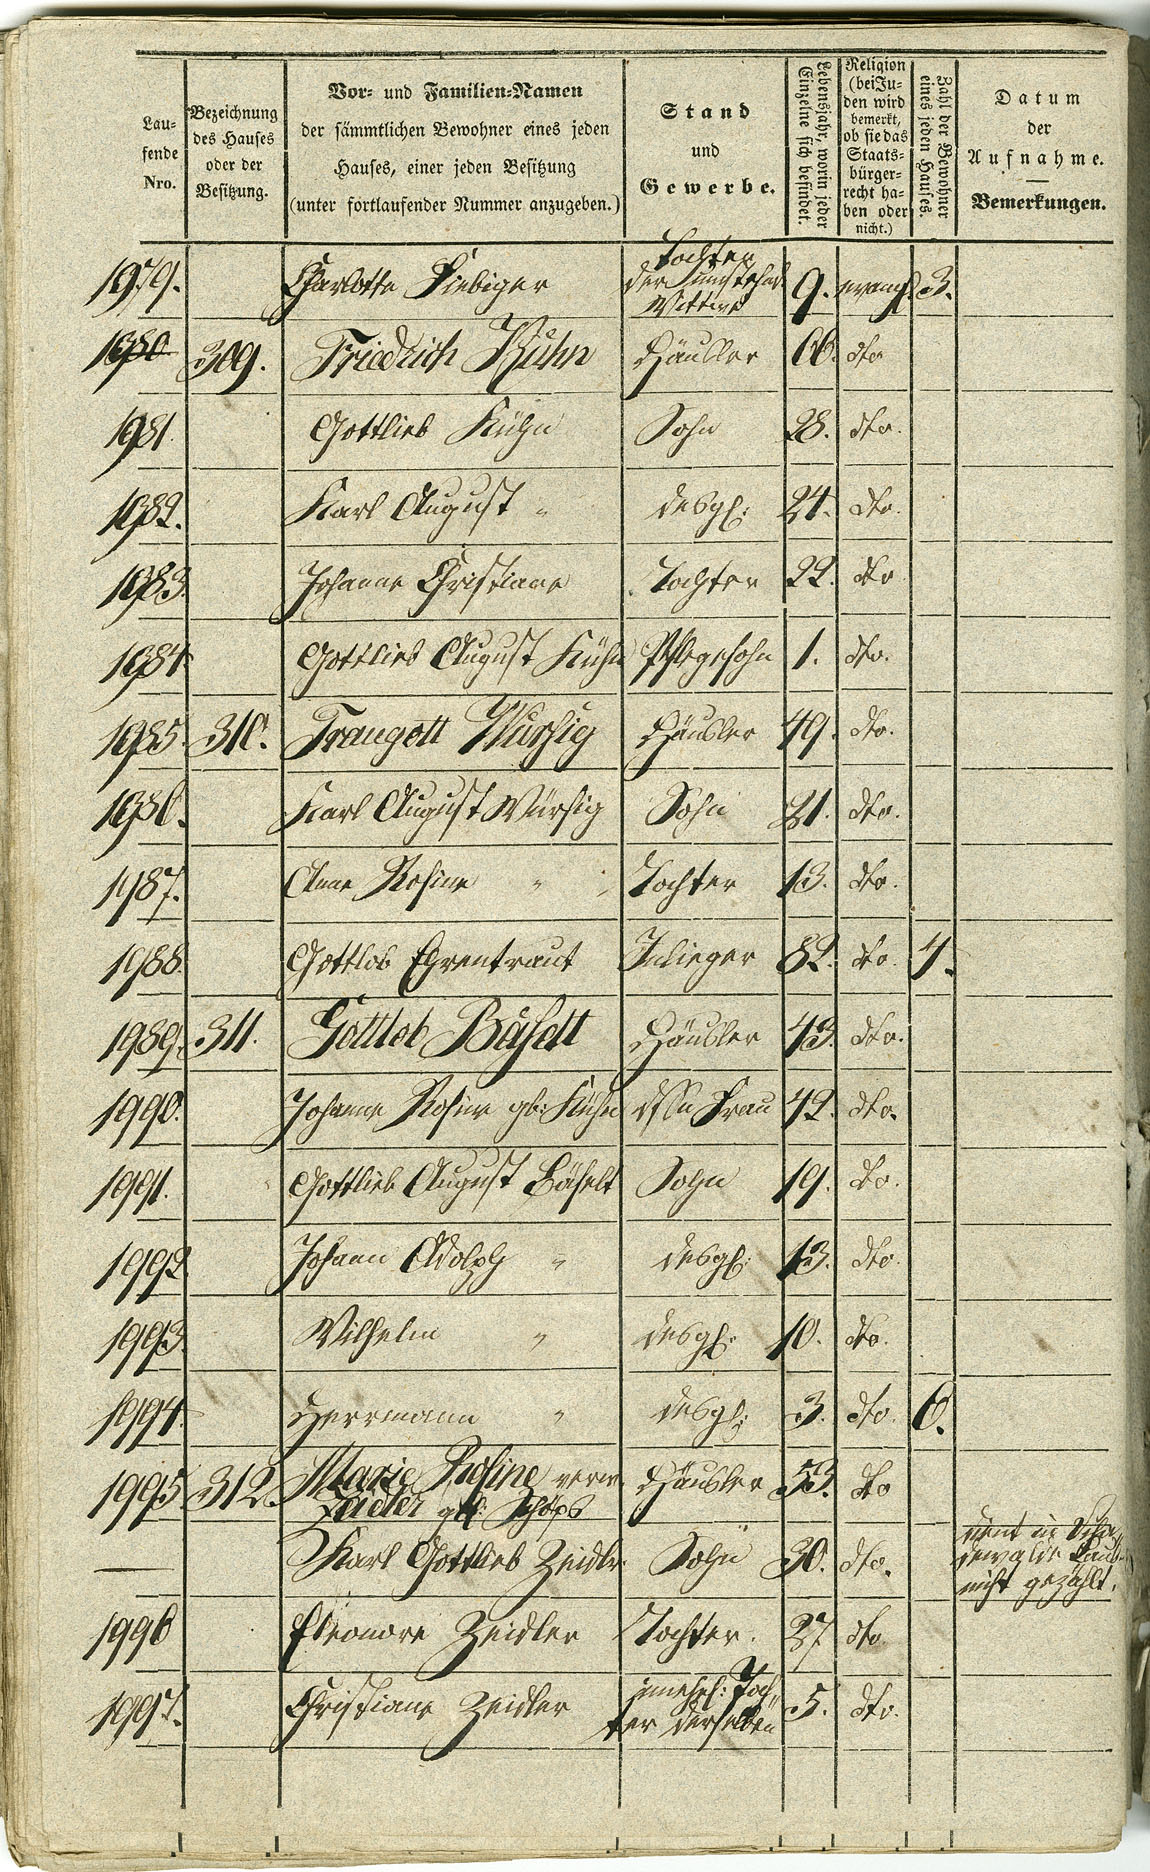 Lau-
fende
Nro.
Bezeichnung
des Hauses
oder der
Besitzung.
Vor- und Familien-Namen
der sämmtlichen Bewohner eines jeden
Hauses, einer jeden Besitzung
(unter fortlaufender Nummer anzugeben.)
Stand
und
Gewerbe.
Lebensjahr, worin jeder
Einzelne sich befindet.
Religion
(bei Ju-
den wird
bemerkt,
ob sie das
Staats-
bürger-
recht ha-
ben oder
nicht.)
Zahl der Bewohner
eines jeden Hauses.
Datum
der
Aufnahme.
Bemerkungen.
1979. Charlotte Liebiger Tochter der Wittwe 9. evangl. 3.
1980 309. Friedrich Kühn Häusler 66. dto
1981. Gottlieb Kühn Sohn 28. dto.
1982. Karl August " desgl: 24. dto.
1983. Johanne Christiane Tochter 22. dto
1984 Gottlieb August Kühn Pflegesohn 1. dto.
1985. 310. Traugott Würsig Häusler 49. dto.
1986. Karl August Würsig Sohn 21. dto.
1987. Anne Rosine " Tochter 13. dto.
1988. Gottlob Ehrentraut Inlieger 82. dto. 4.
1989. 311. Gottlob Bäselt Häusler 43. dto.
1990. Johanne Rosine gb: Kühn dssn Frau 42. dto.
1991. Gottlieb August Bäselt Sohn 19. dto.
1992. Johann Adolph " desgl: 13. dto.
1993. Wilhelm " desgl: 10. dto.
1994. Herrmann " desgl: 3. dto. 6.
1995 312. Marie Rosine verw. Häusler 53. dto
Zeidler geb: Schöps
— Karl Gottlieb Zeidler Sohn 30. dto. dient in
nicht gezählt.
1996 Eleonore Zeidler Tochter. 27 dto.
1997. Christiane Zeidler unehel: Toch- 5. dto.
ter derselben